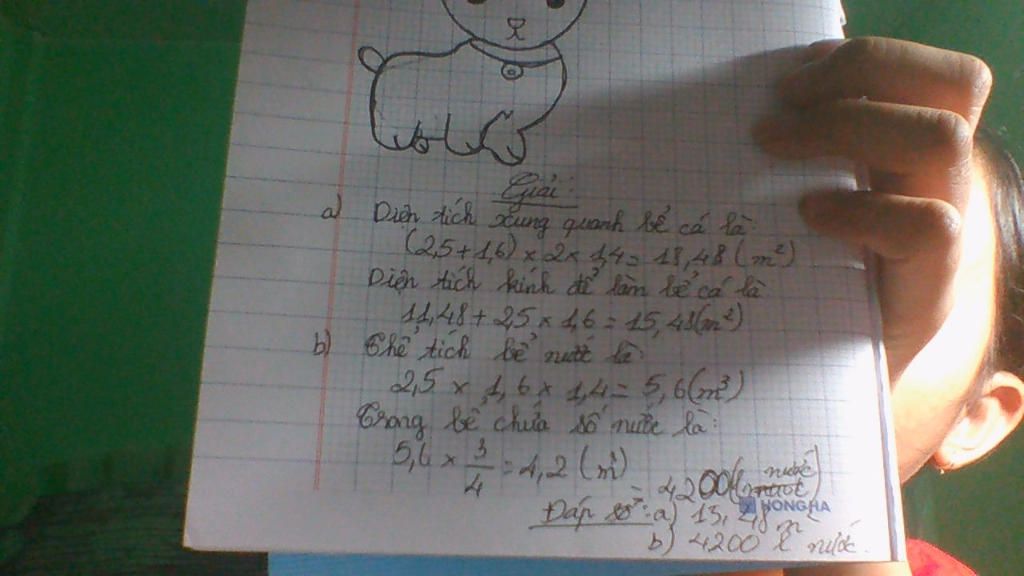 Giải:
a) Diện tích xung quanh bể cá là:
(2,5+1,6) × 2 × 1,4 = 18,48 (m²)
Diện tích kính để làm bể cá là
11,48 + 2,5 × 1,6 = 15,48 (m²)
b) Thể tích bể nước là:
2,5 × 1,6 × 1,4 = 5,6 (m³)
Trong bể chứa số nước là:
5,6 × 3/4 = 4,2 (m³)
= 4200 (l nước)
HONG HA
Đáp số: a) 15,48 m²
b) 4200 l nước.